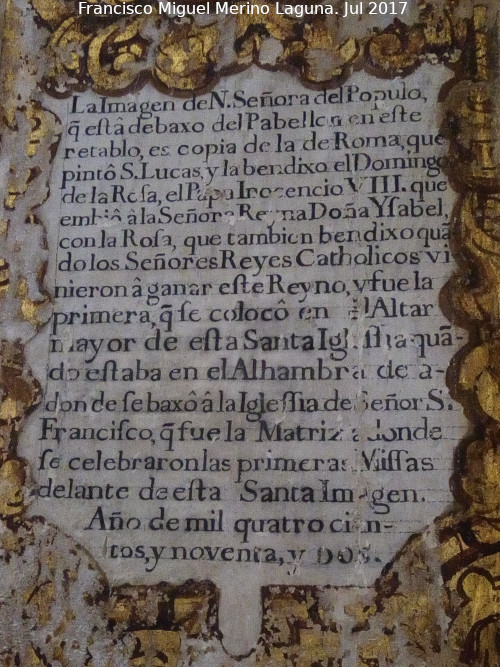 Francisco Miguel Merino Laguna. Jul 2017
La Imagen de N. Señora del Populo,
q̃ eſtâ debaxo del Pabellon en eſte
retablo, es copia de la de Roma, que
pintô S. Lucas, y la bendixo el Domingo
de la Roſa, el Papa Inocencio VIII. que
embiô â la Señora Reyna Doña Yſabel,
con la Roſa, que tambien bendixo quã
do los Señores Reyes Catholicos vi
nieron â ganar eſte Reyno, y fue la
primera, q̃ ſe colocô en el Altar
mayor de eſta Santa Igleſſia quã-
do eſtaba en el Alhambra de a-
donde ſe baxô â la Igleſſia de Señor S.
Franciſco, q̃ fue la Matriz adonde
ſe celebraron las primeras Miſſas
delante de eſta Santa Imagen.
Año de mil quatrocien-
tos, y noventa, y DOS.